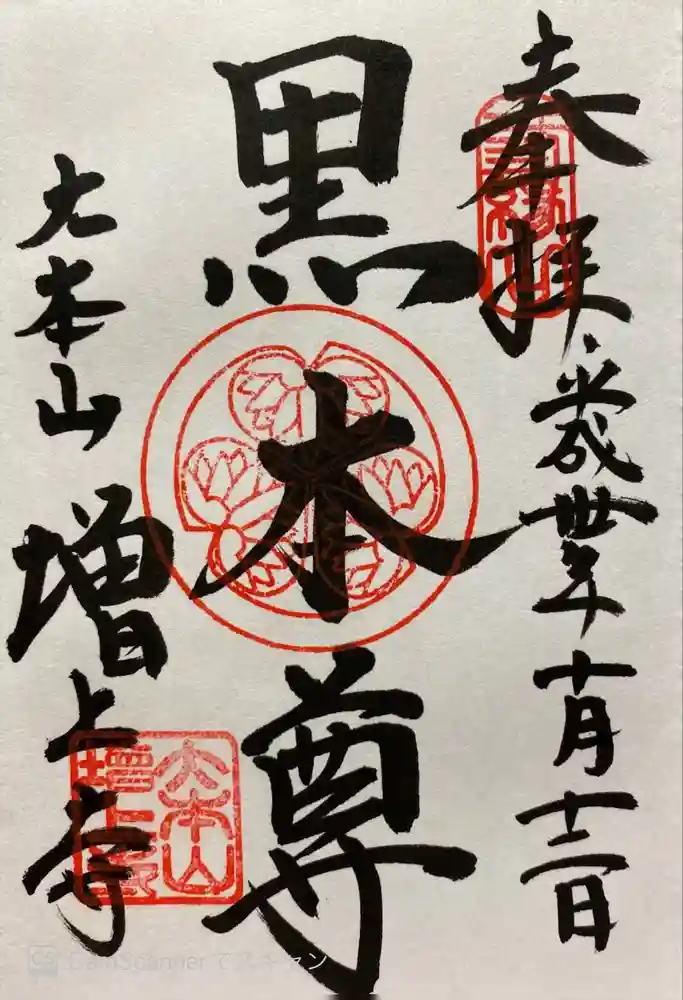 奉拝
平成丗年十月十二日
三縁山
黒本尊
大本山
増上寺
大本山
増上寺
CS CamScanner でスキャン